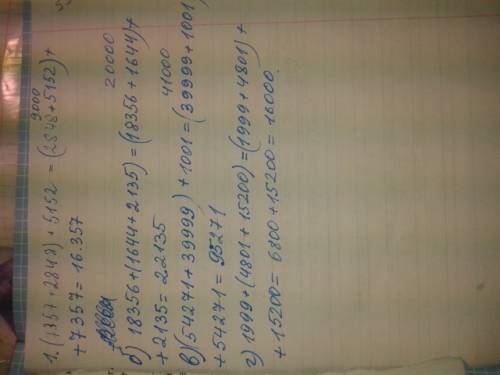 9000
1. (7357+2848) + 5152 = (2848+5152)+
+7357= 16.357
20000
б) 18356+(1644+2135)=(18356+1644)+
+2135= 22135
41000
в)(54271+39999)+1001=(39999+1001)
+54271= 95271
г) 1999+(4801+15200)=(1999+4801)+
+15200= 6800+15200= 16000